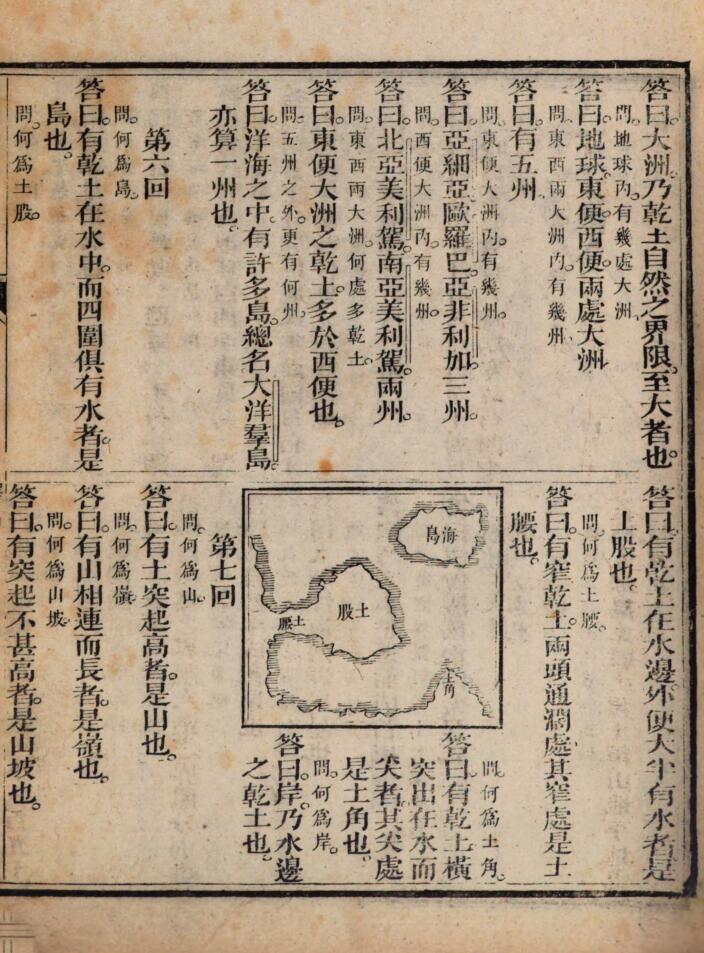 答曰。大洲、乃乾土自然之界限。至大者也。
問。地球內。有幾處大洲。
答曰。地球。東便。西便。兩處大洲。
問。東西兩大洲內。有幾州。
答曰。有五州。
問。東便大洲內。有幾州。
答曰。亞細亞歐羅巴。亞非利加三州。
問。西便大洲內。有幾州。
答曰。北亞美利駕。南亞美利駕。兩州。
問。東西兩大洲。何處多乾土。
答曰。東便大洲之乾土。多於西便也。
問。五州之外。更有何州。
答曰。洋海之中。有許多島。總名大洋羣島。
亦算一州也。
第六回
問。何爲島。
答曰。有乾土在水中。而四圍俱有水者。是
島也。
問。何爲土股。
答曰。有乾土在水邊。外便大半有水者。是
土股也。
問。何爲土腰。
答曰。有窄乾土。兩頭通濶處。其窄處是土
腰也。
海島
土股
土腰
土角
問。何爲土角。
答曰。有乾土橫
突出在水而
尖者。其尖處
是土角也。
問。何爲岸。
答曰。岸。乃水邊
之乾土也。
第七回
問。何爲山。
答曰。有土突起高者。是山也。
問。何爲嶺。
答曰。有山相連而長者。是嶺也。
問。何爲山坡。
答曰。有突起不甚高者。是山坡也。